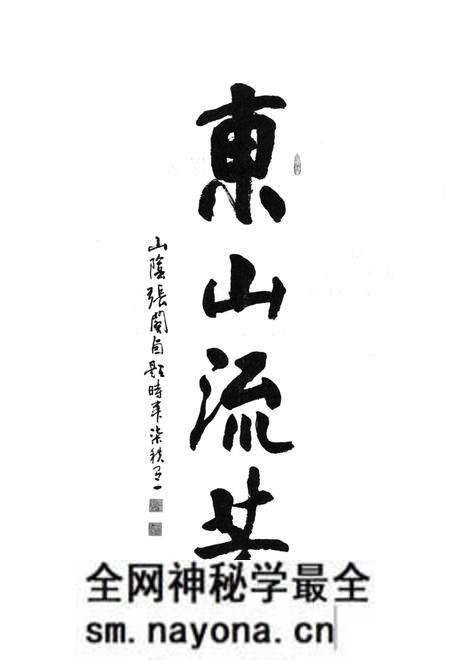 東山流
山陰張自題時年柒秩一
全网神秘学最全
sm.nayona.cn